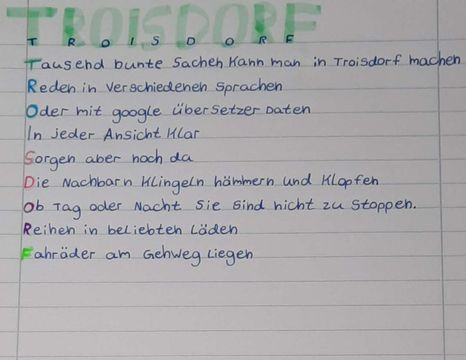 TROISDORF
T R O I S D O R F
Tausend bunte Sachen kann man in Troisdorf machen
Reden in verschiedenen Sprachen
Oder mit google übersetzer Daten
In jeder Ansicht klar
Sorgen aber noch da
Die Nachbarn klingeln hämmern und klopfen
Ob Tag oder Nacht Sie sind nicht zu stoppen.
Reihen in beliebten Läden
Fahrräder am Gehweg liegen